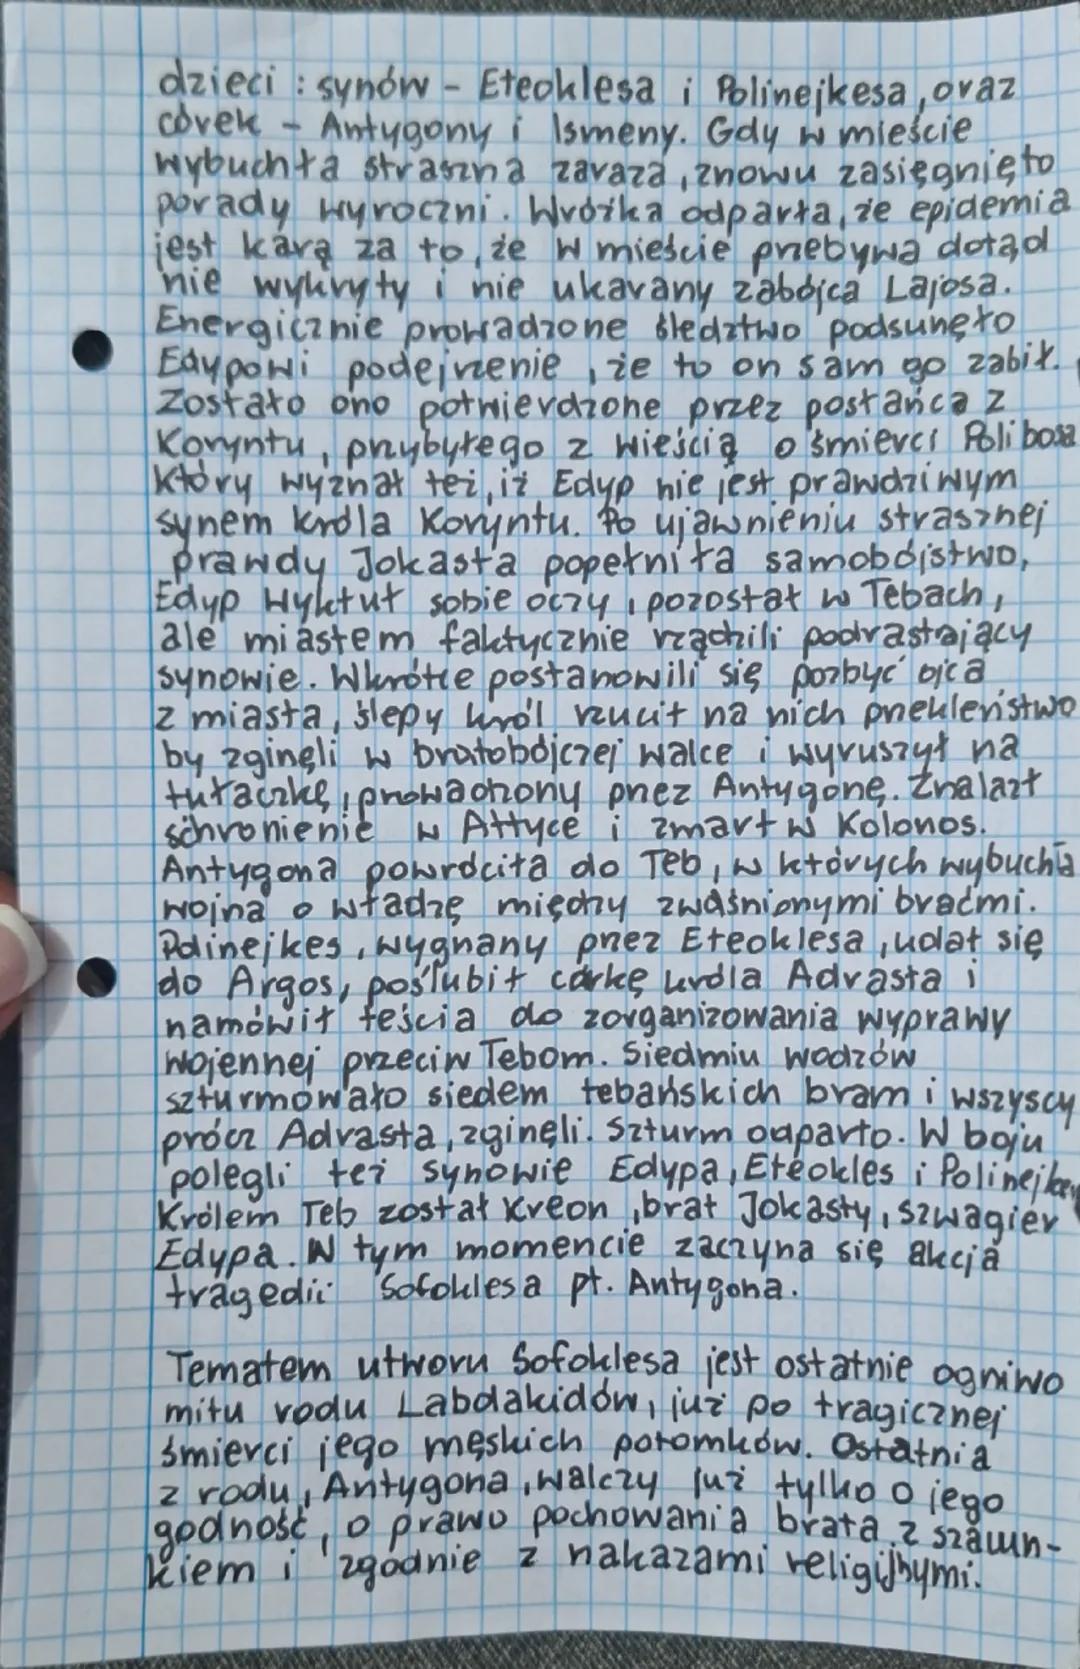 dzieci : synów - Eteoklesa i Polinejkesa, oraz
córek - Antygony i Ismeny. Gdy w mieście
wybuchła straszna zaraza, znowu zasięgnięto
porady wyroczni. Wróżka odparła, że epidemia
jest karą za to, że w mieście przebywa dotąd
nie wykryty i nie ukarany zabójca Lajosa.
Energicznie prowadzone śledztwo podsunęło
Edypowi podejrzenie, że to on sam go zabił.
Zostało ono potwierdzone przez posłańca z
Koryntu, przybyłego z wieścią o śmierci Polibosa
który wyznał też, iż Edyp nie jest prawdziwym
synem króla Koryntu. Po ujawnieniu strasznej
prawdy Jokasta popełniła samobójstwo,
Edyp wykłuł sobie oczy, pozostał w Tebach,
ale miastem faktycznie rządzili podrastający
synowie. Wkrótce postanowili się pozbyć ojca
z miasta, ślepy król rzucił na nich przekleństwo
by zginęli w bratobójczej walce i wyruszył na
tułaczkę, prowadzony przez Antygonę. Znalazł
schronienie w Attyce i zmarł w Kolonos.
Antygona powróciła do Teb, w których wybuchła
wojna o władzę między zwaśnionymi braćmi.
Polinejkes, wygnany przez Eteoklesa, udał się
do Argos, poślubił córkę króla Adrasta i
namówił teścia do zorganizowania wyprawy
wojennej przeciw Tebom. Siedmiu wodzów
szturmowało siedem tebańskich bram i wszyscy
prócz Adrasta, zginęli. Szturm odparto. W boju
polegli też synowie Edypa, Eteokles i Polinejkes
Królem Teb został Kreon, brat Jokasty, szwagier
Edypa. W tym momencie zaczyna się akcja
tragedii Sofoklesa pt. Antygona.
Tematem utworu Sofoklesa jest ostatnie ogniwo
mitu rodu Labdakidów, już po tragicznej
śmierci jego męskich potomków. Ostatnia
z rodu, Antygona, walczy już tylko o jego
godność, o prawo pochowania brata z szacun-
kiem i zgodnie z nakazami religijnymi.